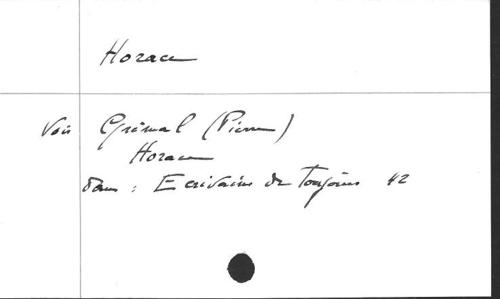 Horace
Voir Grimal (Pierre)
Horace
dans : Ecrivains de Toujours 42